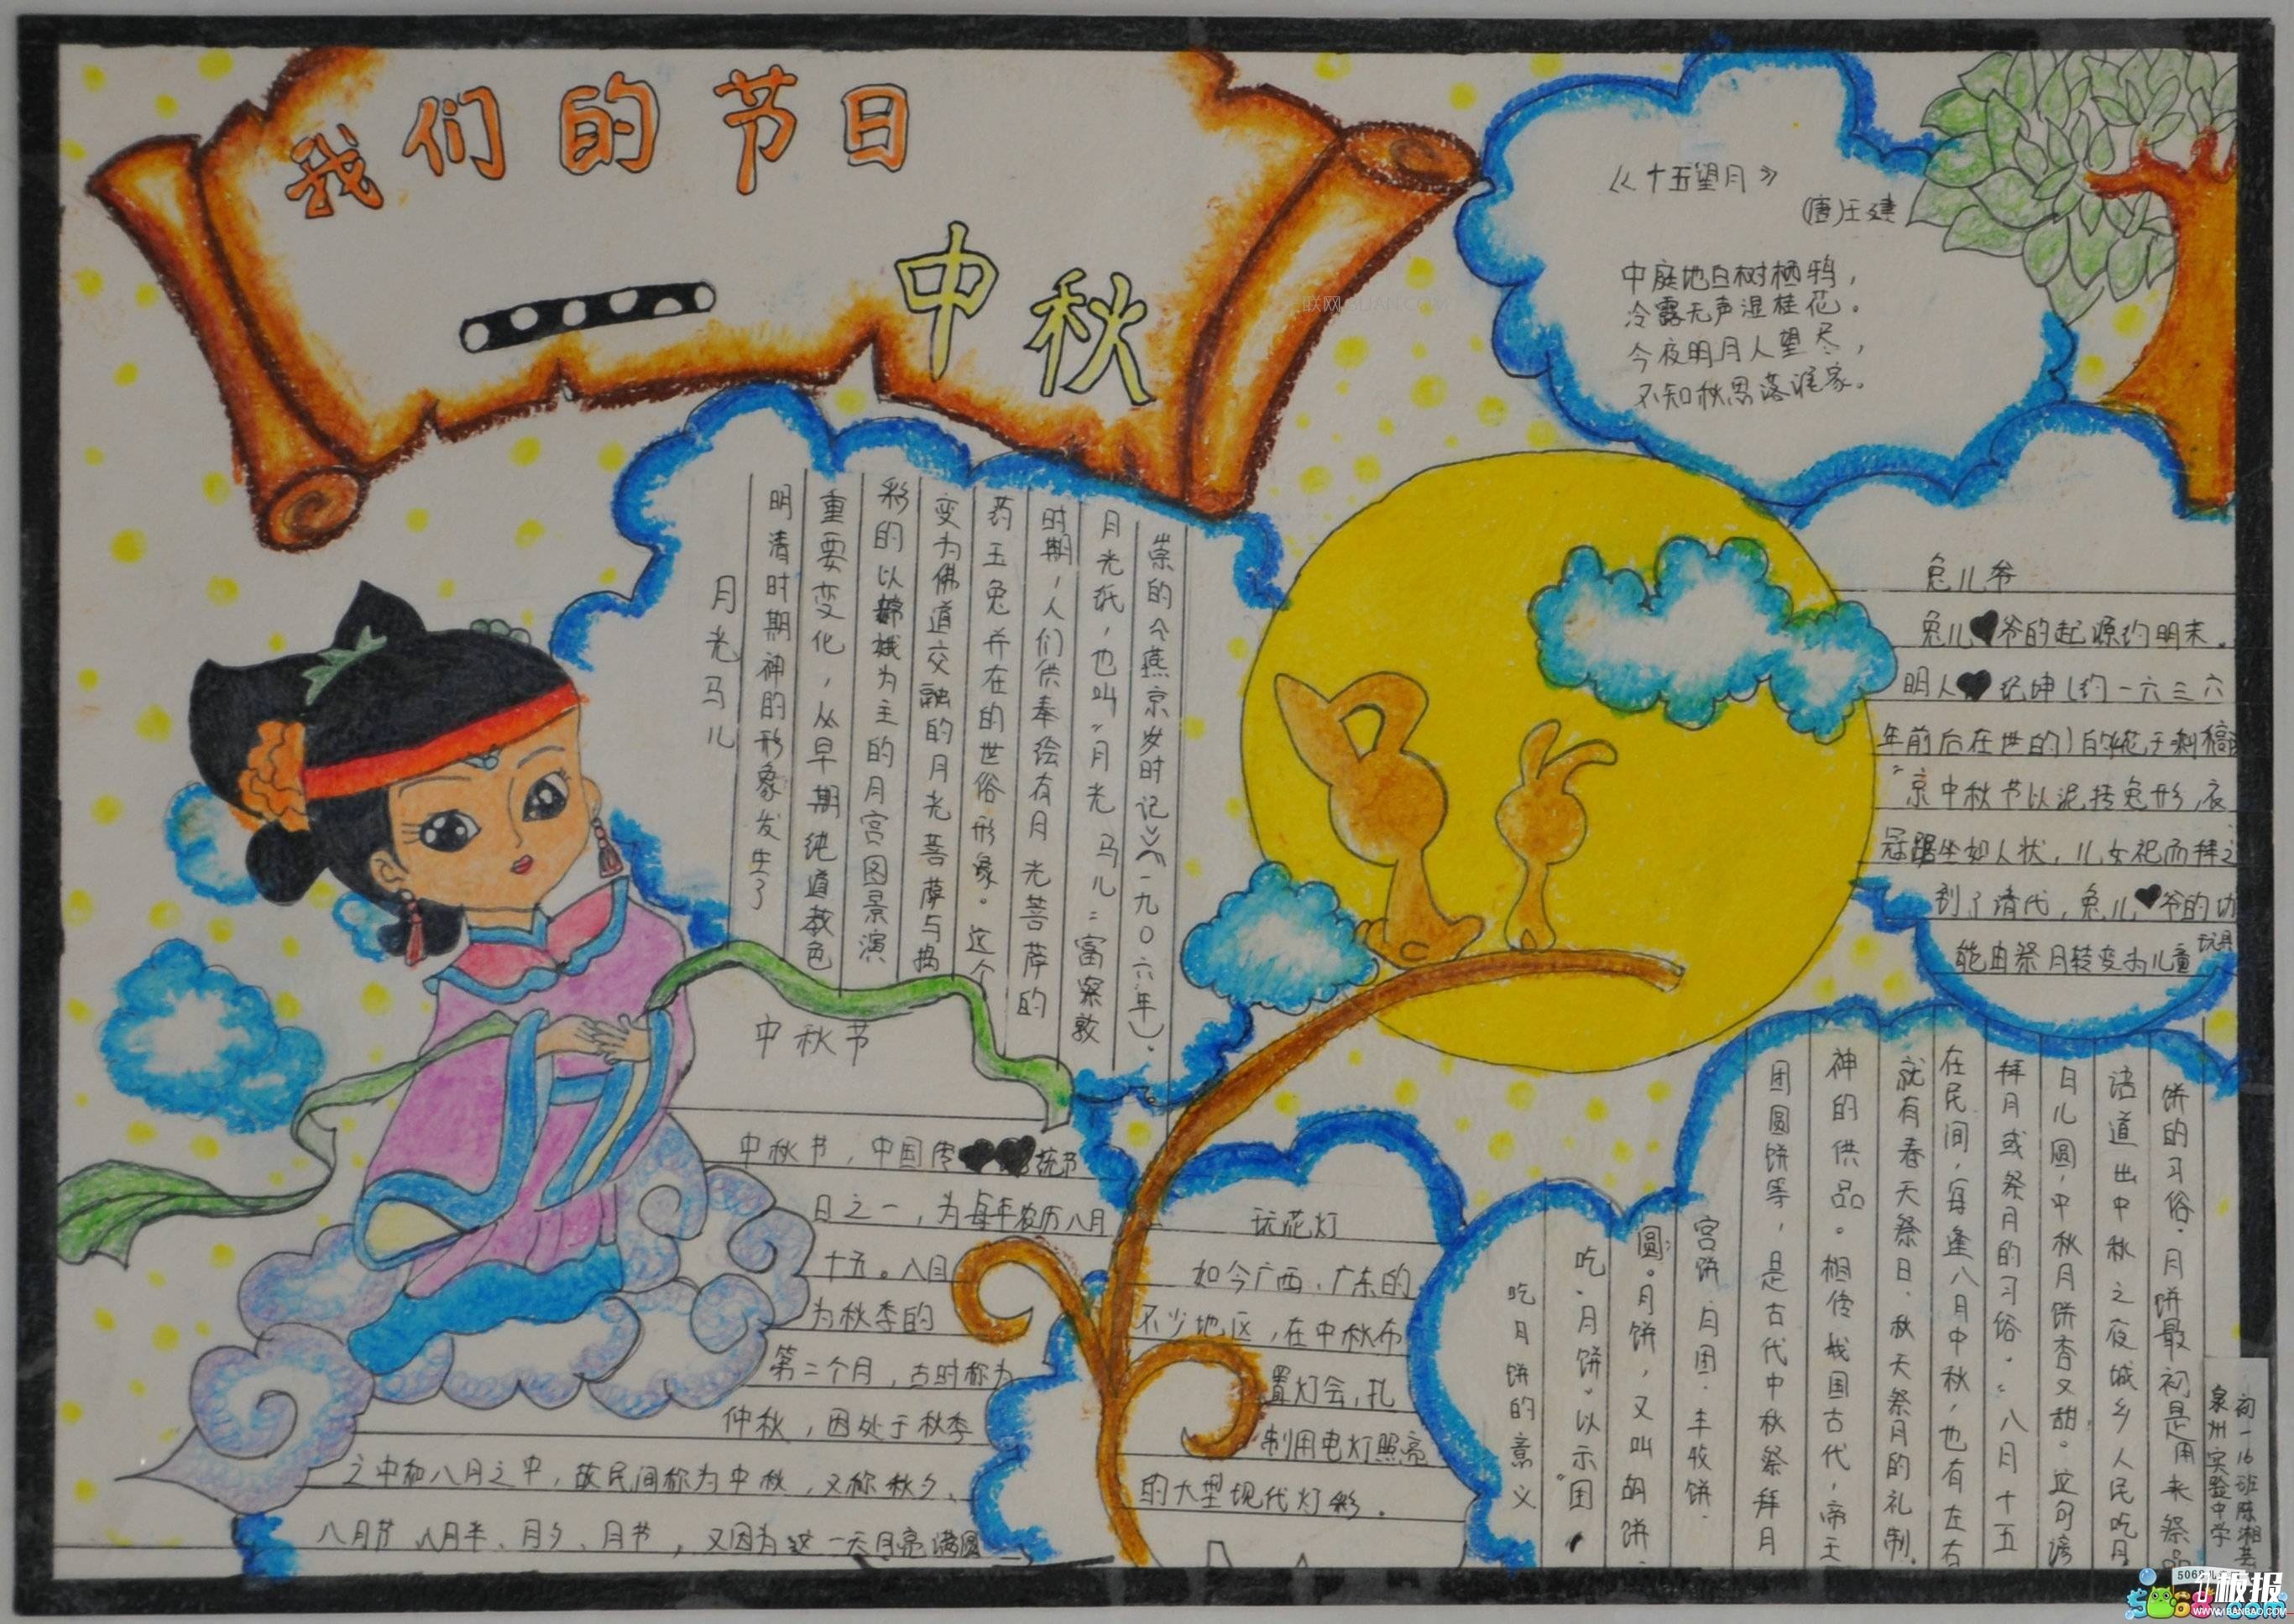 我们的节日
中秋
《十五望月》
(唐)王建
中庭地白树栖鸦，
冷露无声湿桂花。
今夜明月人望尽，
不知秋思落谁家。
月光马儿
明清时期神的形象发生了
重要变化，从早期纯道教色
彩的以嫦娥为主的月宫图景演
变为佛道交融的月光菩萨与捣
药玉兔并在的世俗形象。这个
时期，人们供奉绘有月光菩萨的
月光纸，也叫“月光马儿”富察敦
崇的《燕京岁时记》(一九〇六年)。
兔儿爷
兔儿爷的起源约明末。
明人纪坤(约一六三六
年前后在世的)的《花王剩稿
“京中秋节以泥抟兔形，衣
冠踞坐如人状，儿女祀而拜之
到了清代，兔儿爷的功
能由祭月转变为儿童玩具
中秋节
中秋节，中国传统节
日之一，为每年农历八月
十五。八月
为秋季的
第二个月，古时称为
仲秋，因处于秋季
之中和八月之中，故民间称为中秋，又称秋夕、
八月节、八月半、月夕、月节，又因为这一天月亮满圆
玩花灯
如今广西、广东的
不少地区，在中秋布
置灯会，扎
制用电灯照亮
的大型现代灯彩。
吃月饼的意义
吃“月饼”以示“团
圆”。月饼，又叫胡饼、
宫饼、月团、丰收饼、
团圆饼等，是古代中秋祭拜月
神的供品。相传我国古代，帝王
就有春天祭日、秋天祭月的礼制。
在民间，每逢八月中秋，也有左右
拜月或祭月的习俗。“八月十五
日儿圆，中秋月饼香又甜”。这句谚
语道出中秋之夜城乡人民吃月
饼的习俗。月饼最初是用来祭品
泉州实验中学
初一16班陈湘芸
板报
WWW.1BANBAO.COM